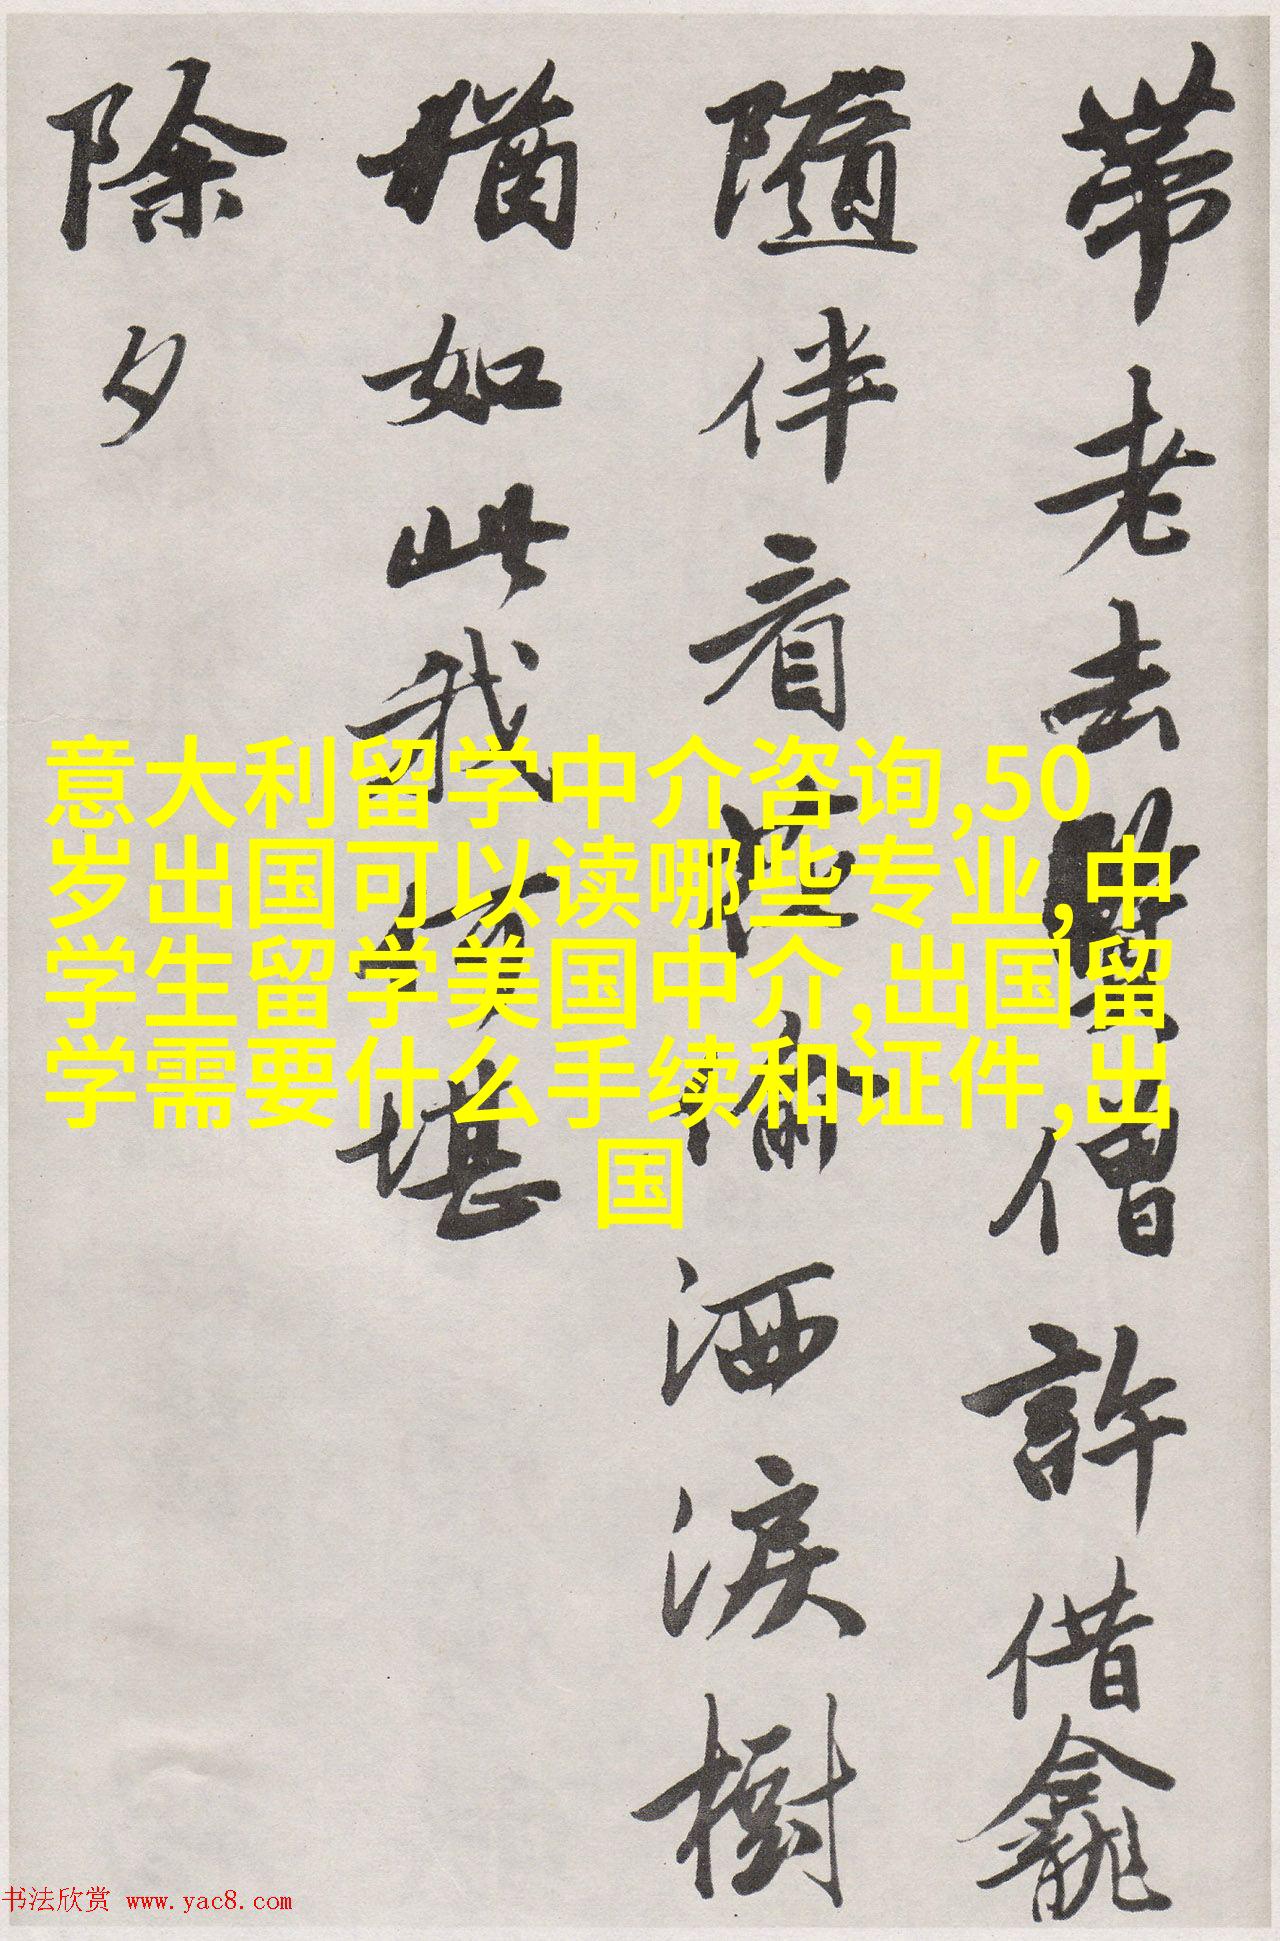 帶老去賢僧許借龕
隨伴看偷洒淚樹
猶如此我何堪
除夕
意大利留学中介咨询,50
岁出国可以读哪些专业,中
学生留学美国中介,出国留
学需要什么手续和证件,出
国
书法欣赏 www.yac8.com